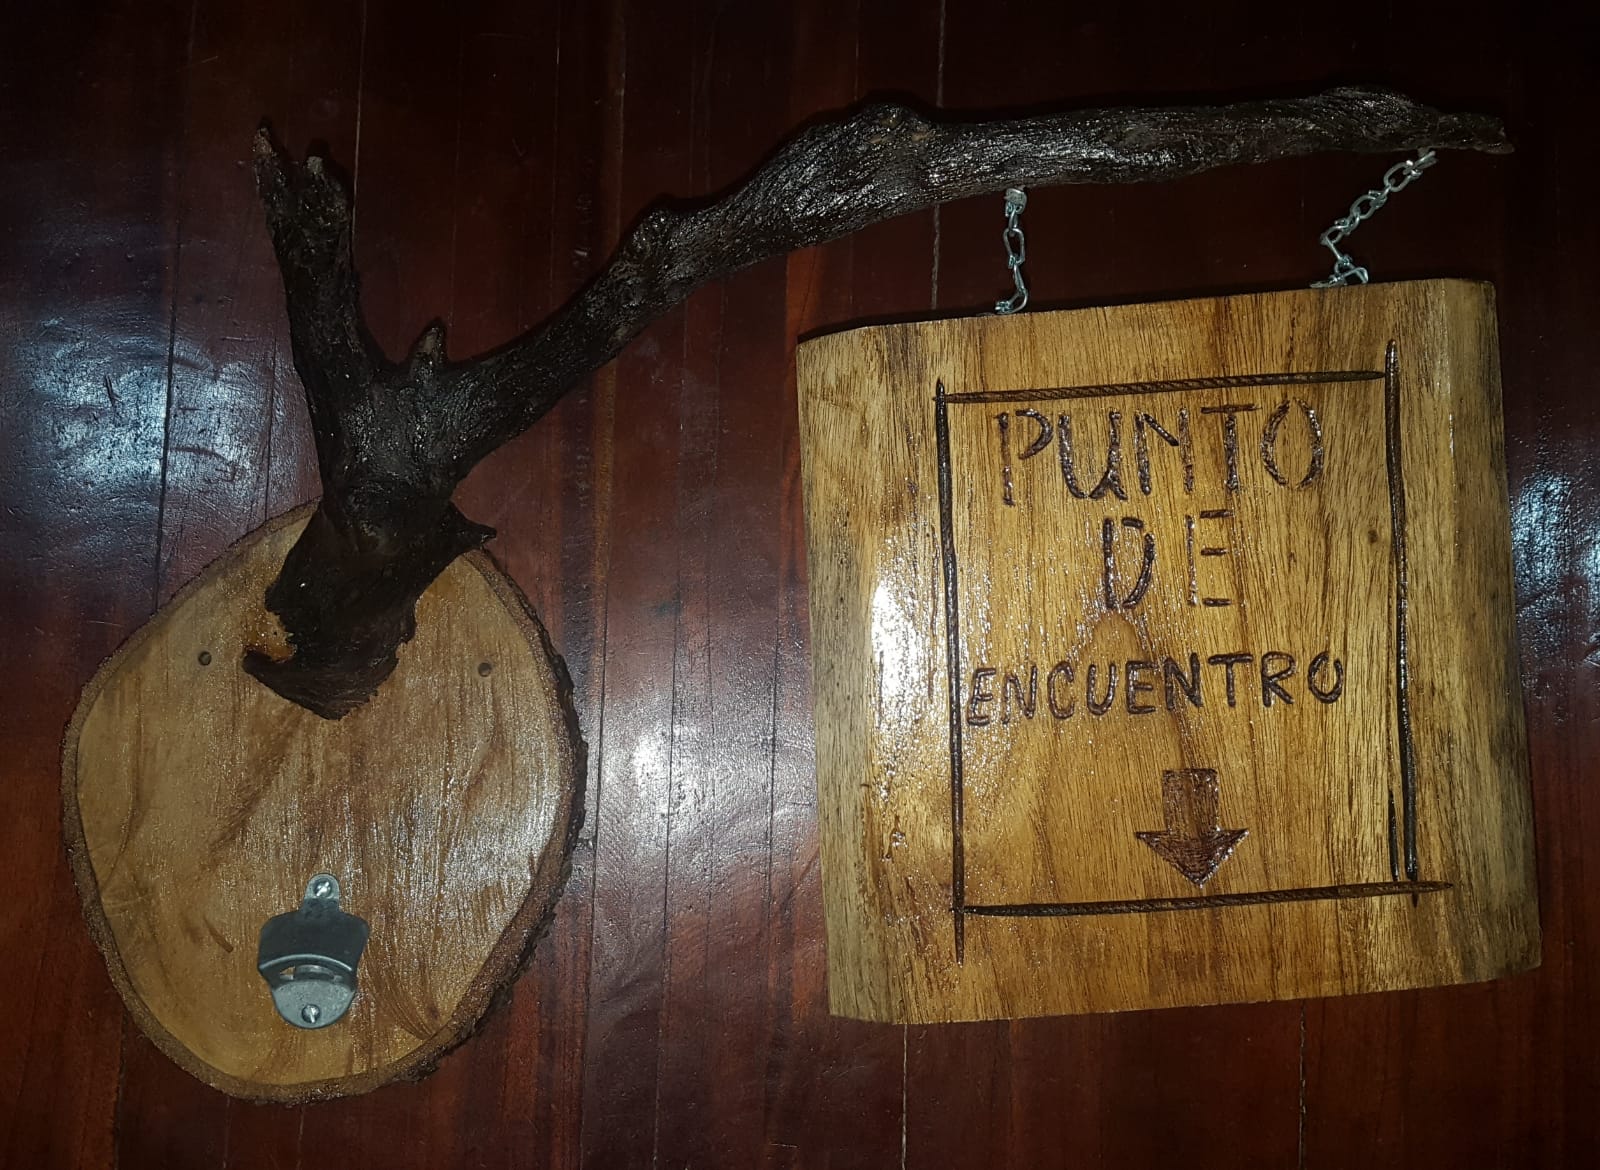 PUNTO
DE
ENCUENTRO